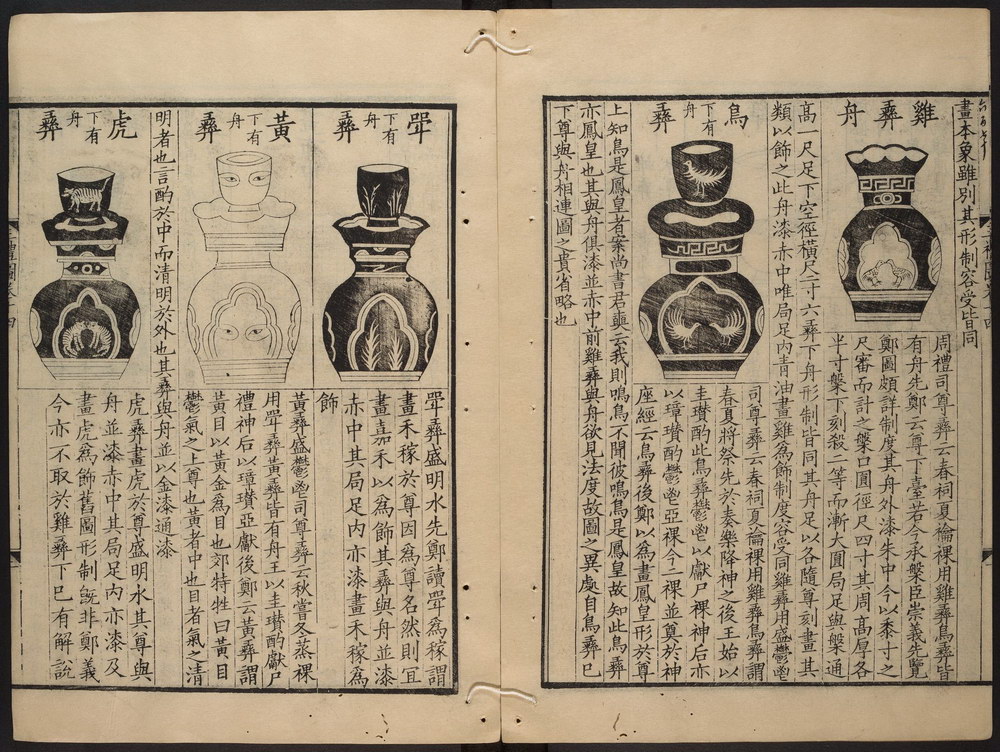 畫本象雖別其形制容受皆同
雞彝舟
周禮司尊彝云春祠夏禴祼用雞彝鳥彝皆
有舟先鄭云尊下臺若今承槃臣崇義先覽
鄭圖頗詳制度其舟外漆朱中今以黍寸之
尺審而計之槃口圓徑尺四寸其周高厚各
半寸槃下刻殺二等而漸大圓局足與槃通
高一尺足下空徑橫尺二寸六彝下舟形制皆同其舟足以各隨尊刻畫其
類以飾之此舟漆赤中唯局足內青油畫雞爲飾制度容受同雞彝用盛鬱鬯
鳥彝下有舟
司尊彝云春祠夏禴祼用雞彝鳥彝謂
春夏將祭先於奏樂降神之後王始以
圭瓚酌此鳥彝鬱鬯以獻尸祼神后亦
以璋瓚酌鬱鬯亞祼今二祼並奠於神
座經云鳥彝後鄭以爲畫鳳皇形於尊
上知鳥是鳳皇者案尚書君奭云我則鳴鳥不聞彼鳴鳥是鳳皇故知此鳥彝
亦鳳皇也其與舟俱漆並赤中前雞彝與舟欲見法度故圖之異處自鳥彝已
下尊與舟相連圖之貴省略也
斝彝下有舟
斝彝盛明水先鄭讀斝爲稼謂
畫禾稼於尊因爲尊名然則宜
畫嘉禾以爲飾其彝與舟並漆
赤中其局足內亦漆畫禾稼爲
飾
黃彝下有舟
黃彝盛鬱鬯司尊彝云秋嘗冬蒸祼
用斝彝黃彝皆有舟王以圭瓚酌獻尸
禮神后以璋瓚亞獻後鄭云黃彝謂
黃目以黃金爲目也郊特牲曰黃目
鬱氣之上尊也黃者中也目者氣之清
明者也言酌於中而清明於外也其彝與舟並以金漆通漆
虎彝下有舟
虎彝畫虎於尊盛明水其尊與
舟並漆赤中其局足內亦漆及
畫虎爲飾舊圖形制旣非鄭義
今亦不取於雞彝下已有解說